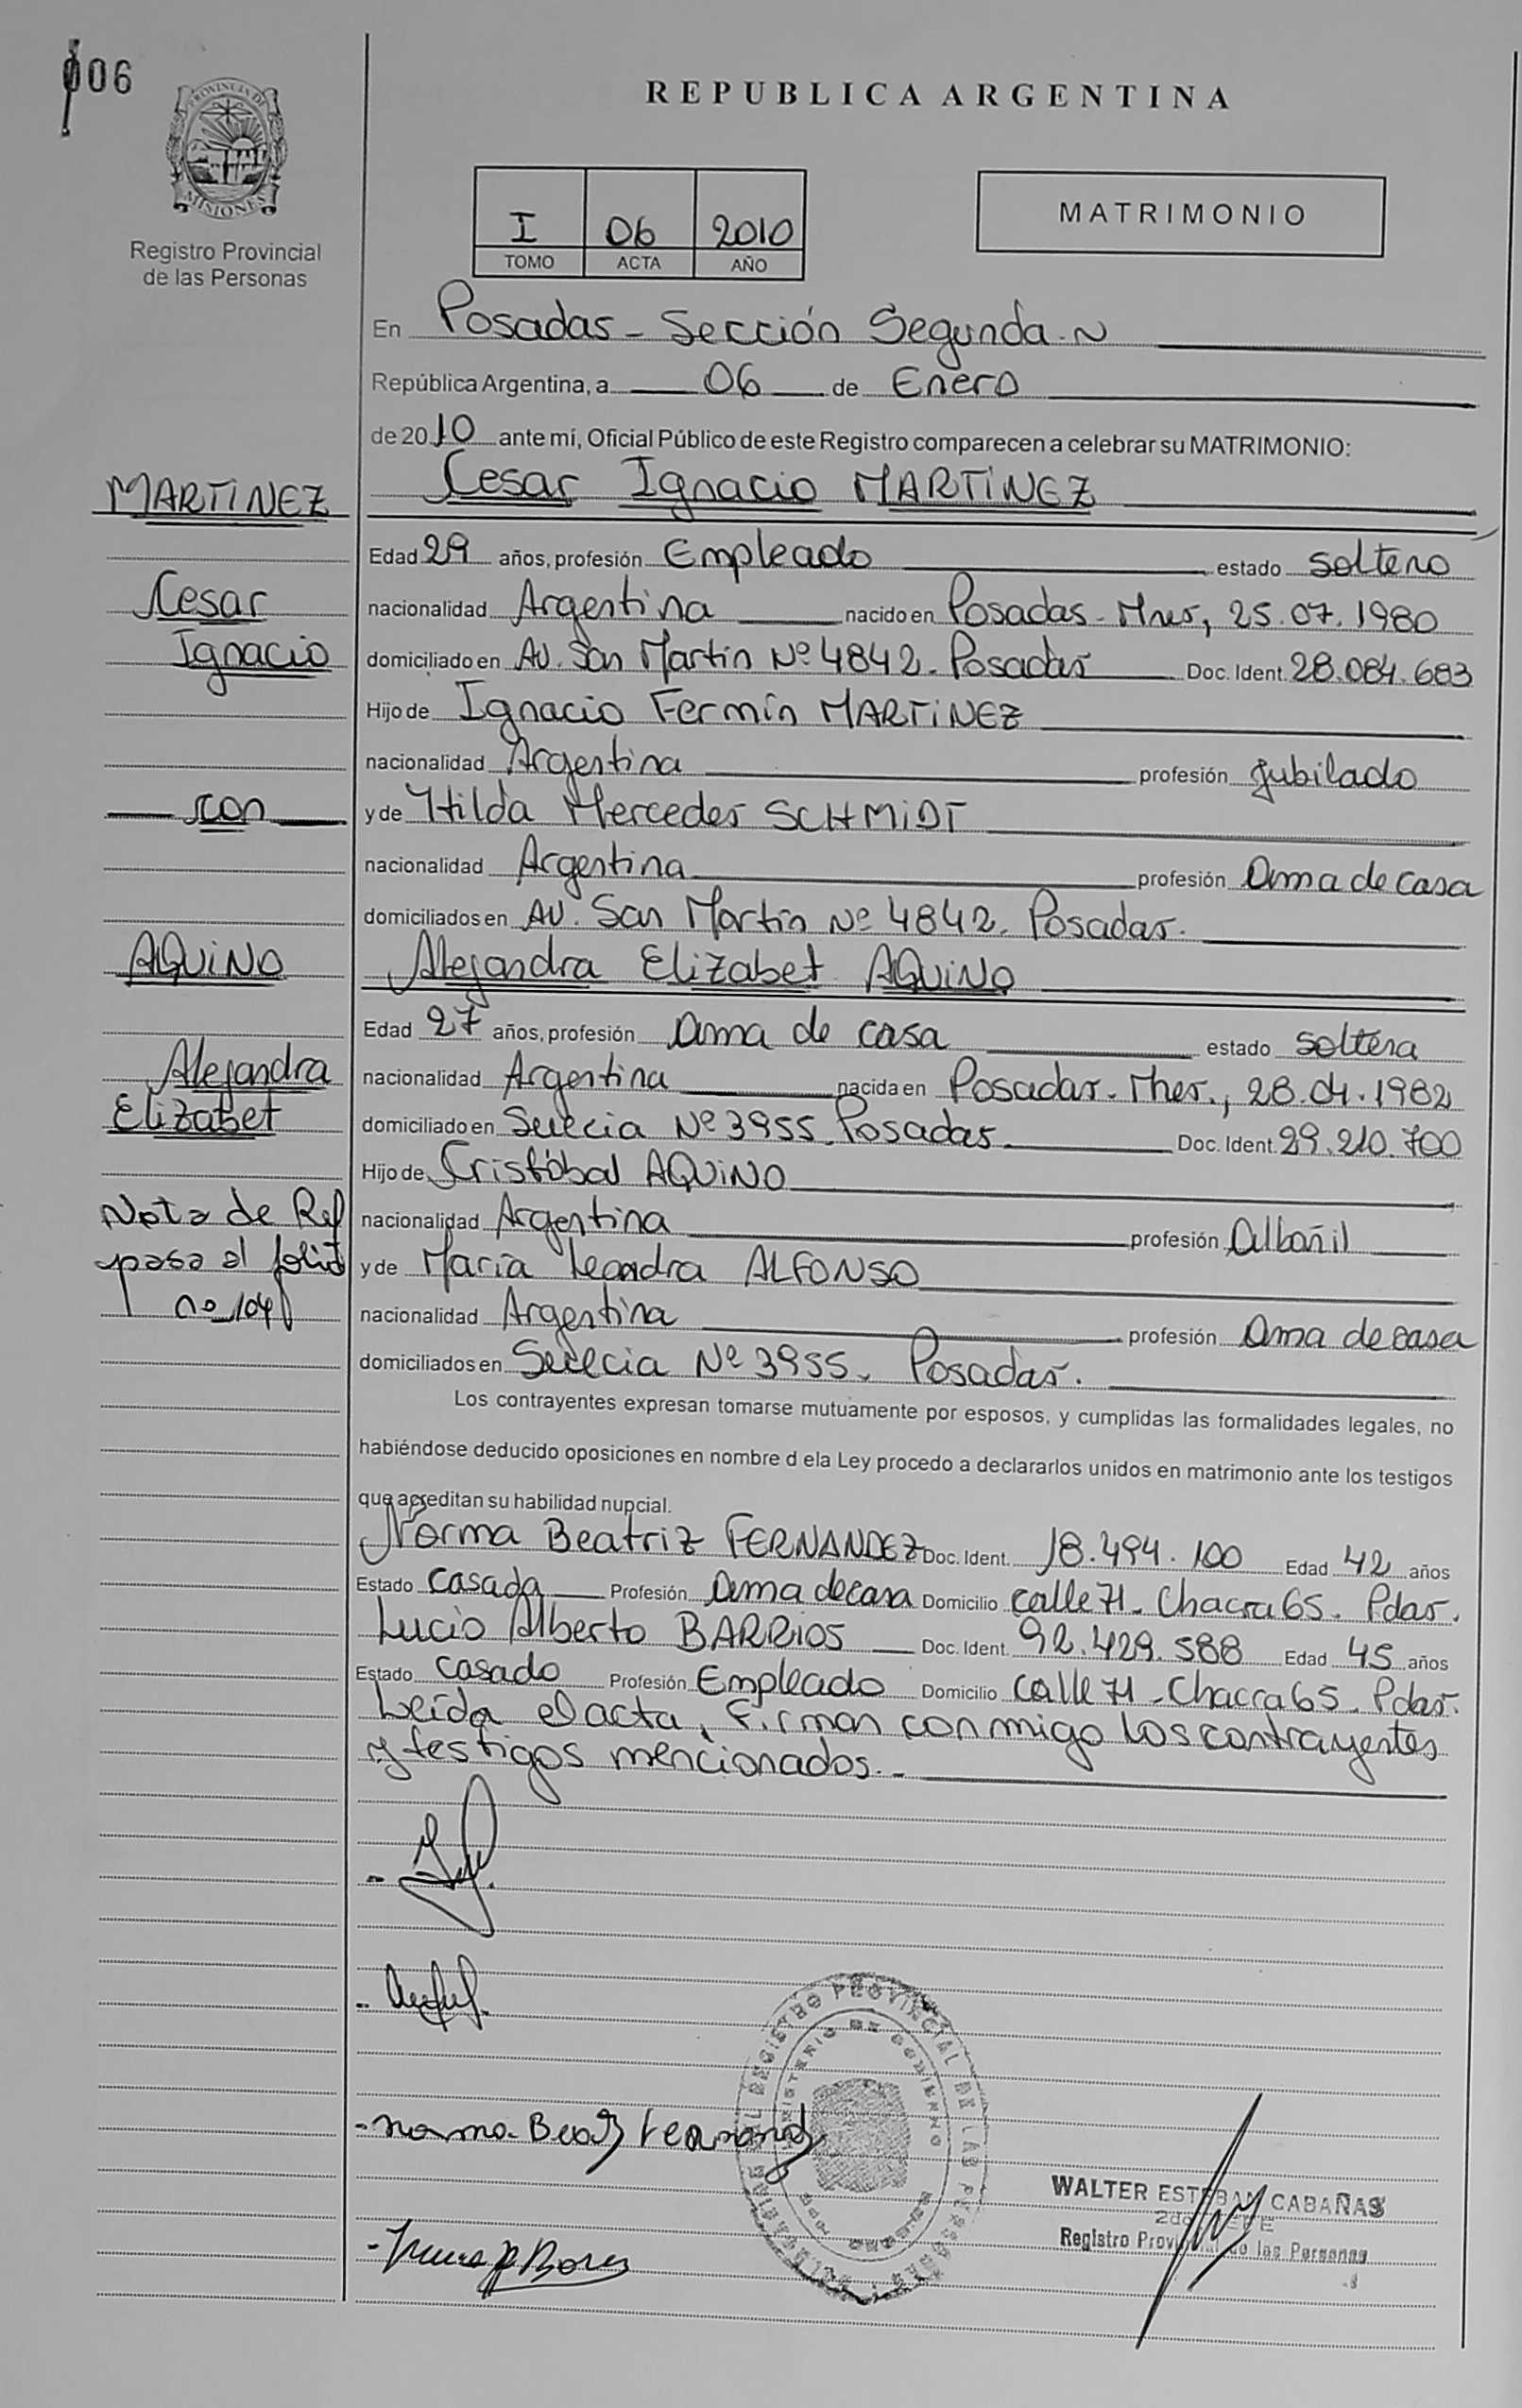 006
PROVINCIA DE
MISIONES
Registro Provincial
de las Personas
REPUBLICA ARGENTINA
I 06 2010
TOMO ACTA AÑO
MATRIMONIO
En Posadas - Sección Segunda.
República Argentina, a 06 de Enero
de 2010 ante mí, Oficial Público de este Registro comparecen a celebrar su MATRIMONIO:
MARTINEZ
Cesar Ignacio MARTINEZ
Edad 29 años, profesión Empleado estado soltero
Cesar
nacionalidad Argentina nacido en Posadas - Mnes, 25.07.1980
Ignacio
domiciliado en Av. San Martín Nº 4842. Posadas Doc. Ident. 28.084.683
Hijo de Ignacio Fermín MARTINEZ
nacionalidad Argentina profesión Jubilado
con
y de Hilda Mercedes SCHMIDT
nacionalidad Argentina profesión Ama de casa
domiciliados en Av. San Martín Nº 4842. Posadas.
AQUINO
Alejandra Elizabet AQUINO
Edad 27 años, profesión Ama de casa estado soltera
Alejandra
nacionalidad Argentina nacida en Posadas - Mnes., 28.04.1982
Elizabet
domiciliado en Suecia Nº 3955. Posadas. Doc. Ident. 29.210.700
Hijo de Cristóbal AQUINO
Nota de Ref
nacionalidad Argentina profesión Albañil
pasa al folio
y de María Leandra ALFONSO
nº 104
nacionalidad Argentina profesión Ama de casa
domiciliados en Suecia Nº 3955. Posadas.
Los contrayentes expresan tomarse mutuamente por esposos, y cumplidas las formalidades legales, no
habiéndose deducido oposiciones en nombre d ela Ley procedo a declararlos unidos en matrimonio ante los testigos
que acreditan su habilidad nupcial.
Norma Beatriz FERNANDEZ Doc. Ident. 18.494.100 Edad 42 años
Estado Casada Profesión Ama de casa Domicilio Calle 71 - Chacra 65. Pdas.
Lucio Alberto BARRIOS Doc. Ident. 92.429.588 Edad 45 años
Estado Casado Profesión Empleado Domicilio Calle 71 - Chacra 65. Pdas.
Leída el acta, firman conmigo los contrayentes
y testigos mencionados.-
REGISTRO PROVINCIAL DE LAS PERSONAS
MINISTERIO DE GOBIERNO
WALTER ESTEBAN CABAÑAS
2do JEFE
Registro Provincial de las Personas